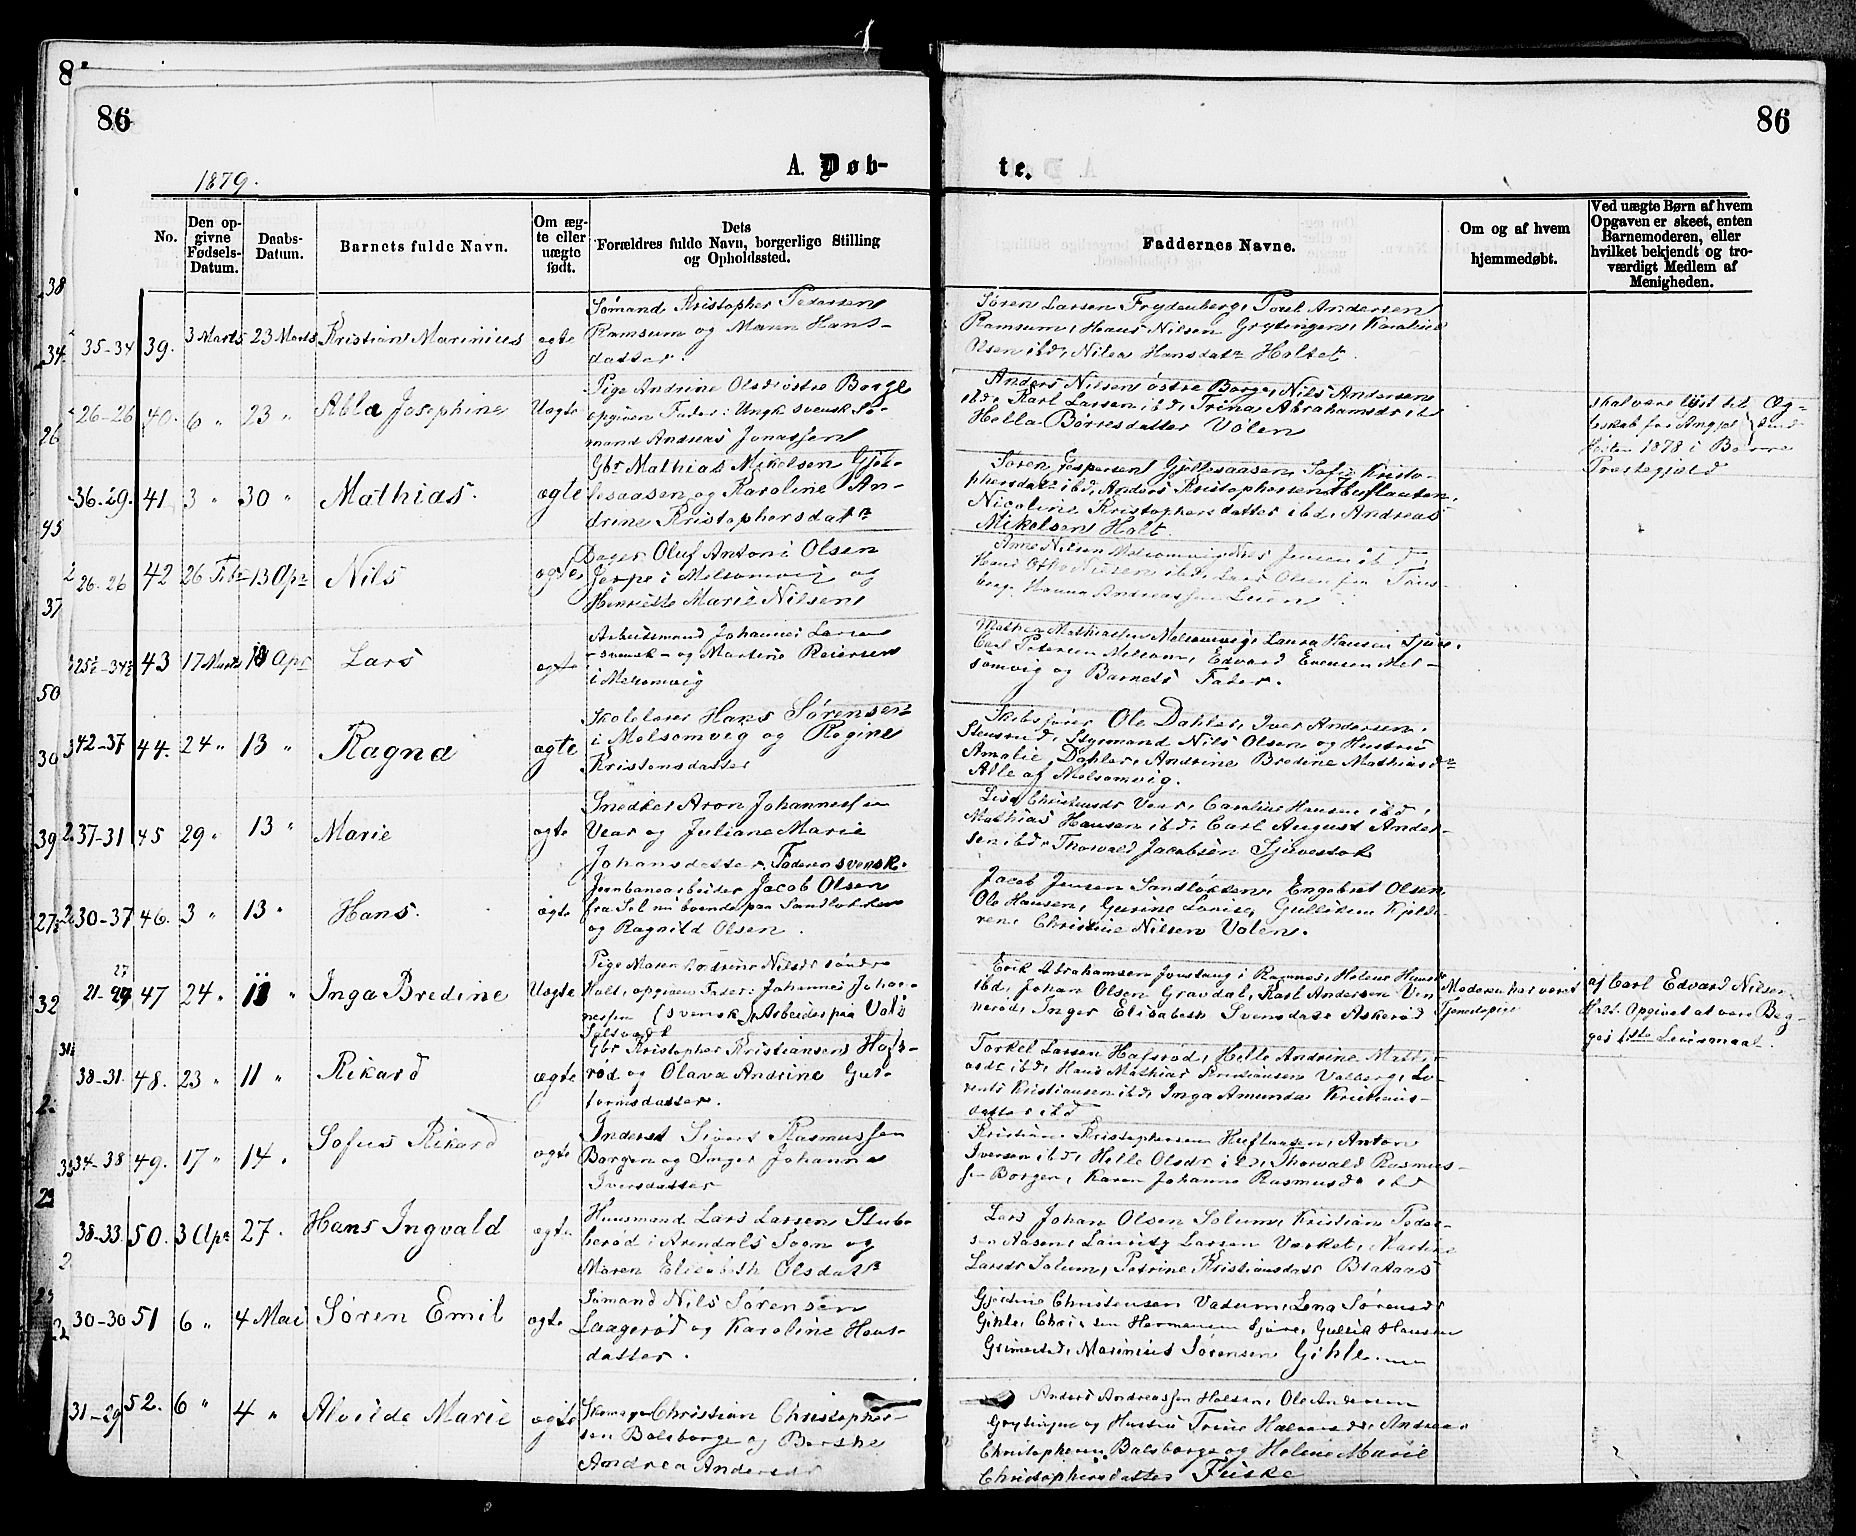 86
86
A. Døb-
te.
1879.
No.
Den op-
givne
Fødsels-
Datum.
Daabs-
Datum.
Barnets fulde Navn.
Om æg-
te eller
uægte
født.
Dets
Forældres fulde Navn, borgerlige Stilling
og Opholdssted.
Faddernes Navne.
Om og af hvem
hjemmedøbt.
Ved uægte Børn af hvem
Opgaven er skeet, enten
Barnemoderen, eller
hvilket bekjendt og tro-
værdigt Medlem af
Menigheden.
35-34 39. 3 Marts 23 Marts Kristian Marinius ægte
Sømand Kristopher Pedersen
Ramsum og Maren Hans-
datter.
Søren Larsen Frydenberg, Poul Andersen
Ramsum, Hans Nilsen Grytingen, Karoline
Olsen ibd, Nilea Hansdatr Holtet.
26-26 40. 6 " 23 " Abla Josephine Uægte
Pige Andrine Olsdr østre Borge
opgiven Fader: Ungk svensk Sø-
mand Andreas Jonassen
Anders Nilsen østre Borge, Nils Andersen
ibd, Karl Larsen ibd, Trina Abrahamsdr ibd
Hella Børresdatter Volen
skal være lyst til Æg-
teskab for
Høsten 1878 i Borre
Præstegjeld
36-29. 41 3 " 30 " Mathias. ægte
Gbr Mathias Mikelsen Gjet-
lesaasen og Karoline An-
drine Kristophersdatr
Søren Jespersen Gjetlesaasen, Sofie Kristo-
phersdatr ibd, Anders Kristophersen Huflaaten,
Nicoline Kristophersdatter ibd, Andreas
Mikelsen Holt.
26-26 42 26 Febr 13 Apr Nils ægte
Bager Oluf Anton Olsen
Jerpe i Melsomvig og
Henriette Marie Nilsen
Anne Nilsen Melsomvig, Nils Jensen ibd,
Hans Otto Nilsen ibd, Lars Olsen fra Tøns-
berg, Hanna Andreassen Luen
43 17 Marts 13 Apr Lars ægte
Arbeidsmand Johannes Larsen
- svensk - og Martine Reiersen
i Melsomvig
Mathea Mathiassen Melsomvig, Laura Hansen Sjue,
Carl Petersen Melsom, Edvard Evensen Mel-
somvig og Barnets Fader.
42-37 44. 24 " 13 " Ragna ægte
Skolelærer Hans Sørensen
i Melsomvig og Regine
Kristensdatter
Skibsfører Ole Dahler, Iver Andersen
Stensrud, Styrmand Nils Olsen og Hustru
Amalie Dahler, Andrine Bredine Mathiasdr
Alle af Melsomvig.
37-31 45 29 " 13 " Marie ægte
Snedker Aron Johannessen
Vear og Juliane Marie
Johansdatter, Faderen svensk.
Lisa Christensdr Vear, Caroline Hansen ibd,
Mathias Hansen ibd, Carl August Ander-
sen ibd, Thorvald Jacobsen Sjuestok
30-37 46. 3 " 13 " Hans. ægte
Jernbanearbeider Jacob Olsen
fra Sel nu boende paa Sandløkken
og Ragnild Olsen.
Jacob Jensen Sandløkken, Engebret Olsen
Ole Hansen, Gurine Lovise, Gullikka Kjeld-
ren, Christine Nilsen Volen.
21-27 47 24 " 11 " Inga Bredine Uægte
Pige Maren Andrine Nilsdr søndre
Holt, opgiven Fader: Johannes Johan-
nessen (svensk) Arbeider paa Valø
Saltværk
Erik Abrahamsen Jonstang i Ramnes, Helene
ibd, Johan Olsen Gravdal, Karl Andersen Vin-
nerød, Inger Elisabeth Svensdatr Askerød
Moderen har været
Tjenestepige
af Carl Edvard Nilsen
Holt. Opgivet at være Beg-
ges 1ste Leiermaal.
38-31. 48. 23 " 11 " Rikard ægte
Gbr Kristopher Kristiansen Hafs-
rød og Olava Andrine Gut-
tormsdatter.
Torkel Larsen Hafsrød, Helle Andrine
ibd, Hans Mathias Kristiansen Valberg, Lo-
rents Kristiansen ibd, Inga Amunda Kristians-
datter ibd
34-38 49. 17 " 14 " Sofus Rikard ægte
Inderst Sivert Rasmussen
Borgen og Inger Johanne
Iversdatter
Kristian Kristophersen Huflaaten, Anton
Iversen ibd, Helle Olsdr ibd, Thorvald Rasmus-
sen Borgen, Karen Johanne Rasmusdr ibd
38-33. 50. 3 Apr 27. Hans Ingvald ægte
Huusmand Lars Larsen Stub-
berød i Arendals Sogn og
Maren Elisabeth Olsdatr
Lars Johan Olsen Solum, Kristian Peder-
sen Aasen, Lauritz Larsen Verket, Martine
Larsdr Solum, Petrine Kristiansdatr Brataas
30-30 51 6 " 4 Mai Søren Emil ægte
Sømand Nils Sørensen
Laagerød og Karoline Hans-
datter.
Gjørdine Christensen Vadum, Lena Sørensdr
Gihle, Hermansen Sjue, Gullik Hansen
Grimestad, Marinius Sørensen Gihle
31-29 52. 6 " 4 " Alvilde Marie ægte
Skomager Christian Christopher-
sen Bolsborge og Berthe
Andrea Andersdr
Anders Andreassen Holsen, Ole Andersen
Grytingen og Hustru Trine, Andreas
Christophersen Bolsborge og Helene Marie
Christophersdatter Feiske